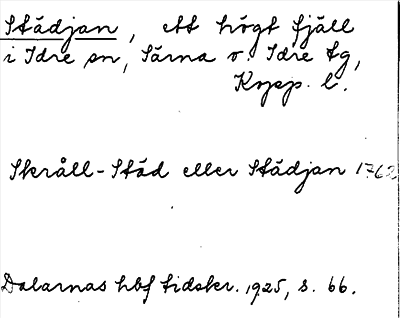 Städjan, ett högt fjäll
i Idre sn, Särna o. Idre tg,
Kopp. l.
Skråll-Städ eller Städjan 1762
Dalarnas hbf tidskr. 1925, s. 66.